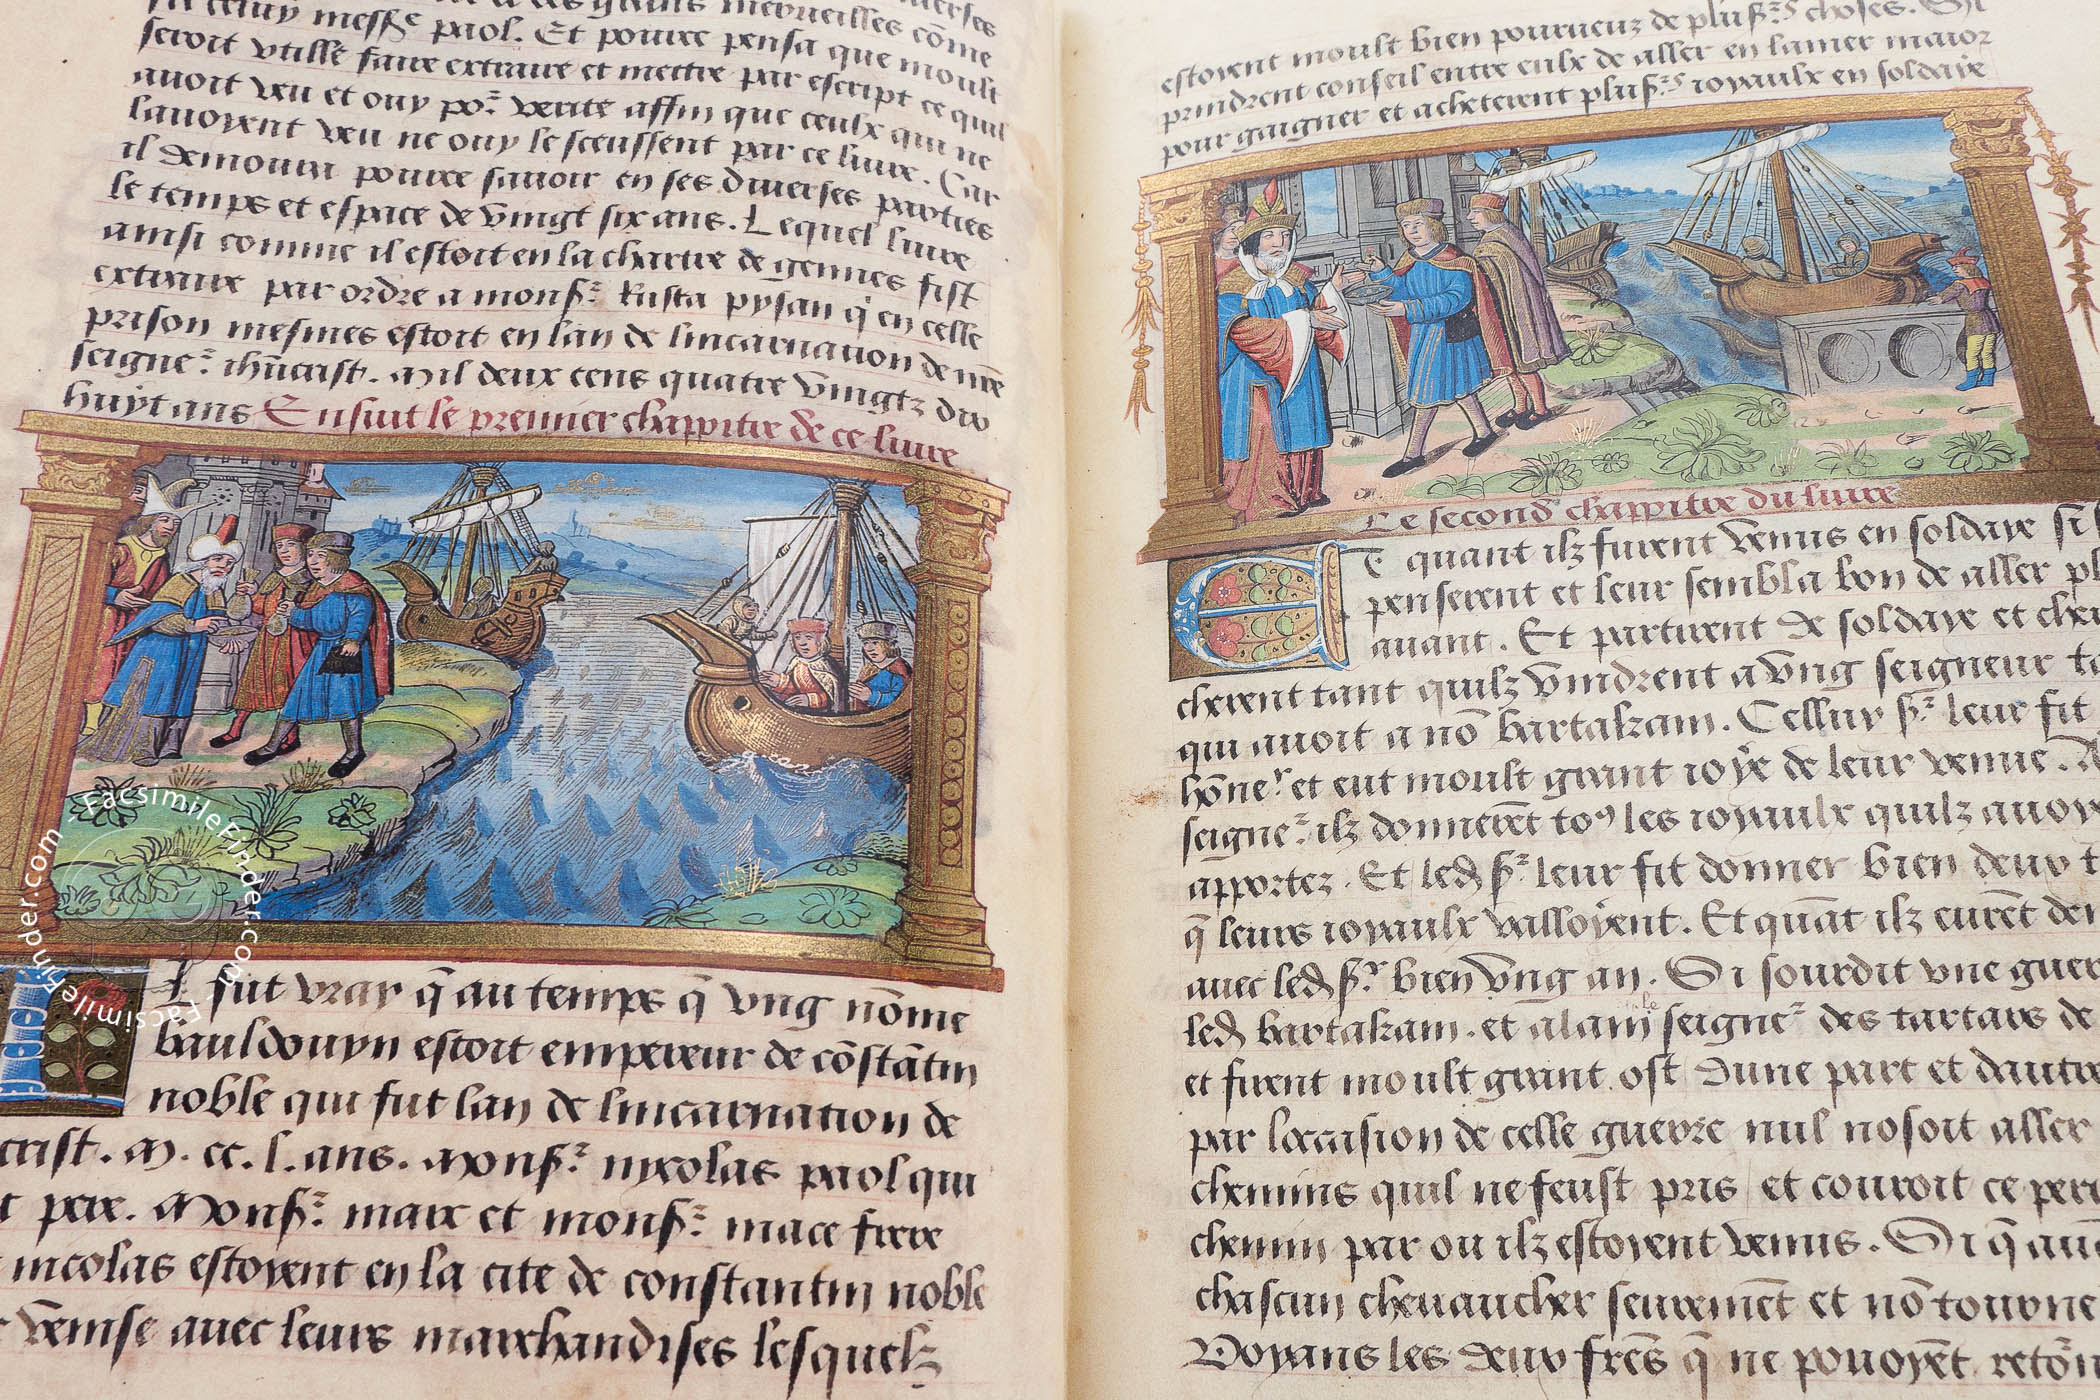 si celuy messe paol. Et pource pensa que moult
seroit utille faire extraire et mettre par escript ce quil
auoit veu et ouy po᷑ verite affin que ceulx qui ne
lauoyent veu ne ouy le sceussent par ce liure. Car
il demoura pource sauoir en ses diuerses parties
le temps et espace de vingt six ans. Lequel liure
ainsi comme il estoit en la chartre de gennes fist
extraire par ordre a monss᷑ Rusta pysan q̇ en celle
prison mesmes estoit en lan de lincarnation de nr̄e
seigne᷑ ihūcrist. Mil deux cens quatre vingtz dix
huyt ans Ensuit le premier chappitre de ce liure
Il fut vray q̄ au temps q̄ vng nōme
bauldouyn estoit empereur de cōstātin
noble qui fut lan de lincarnation de
crist. M. cc. l. ans. Monss᷑ nycolas paol qui
pere. Monss᷑ marc et monss᷑ mace frere
nicolas estoyent en la cite de constantin noble
venise auec leurs marchandises lesquelz
estoyent moult bien pourueuz de plus᷑s choses. Si
prindrent conseil entre eulx de aller en lamer maior
pour gaigner et acheterent plus᷑s ioyaulx en soldaie
Le second chappitre du liure
Et quant ilz furent venus en soldaye si
penserent et leur sembla bon de aller pl
auant. Et partirent de soldaye et che
cherent tant quilz vindrent a vng seigneur
qui auoit a nō bartakam. Celluy s᷑ leur fit
hōne᷑ et eut moult grant ioye de leur venue. A
seigne᷑ ilz donnerēt toꝰ les ioyaulx quilz auoy
apportez. Et led s᷑ leur fit donner bien deux
q̄ leurs ioyaulx valloyent. Et quāt ilz eurēt
auec led s᷑ bien vng an. Si sourdit vne guer
led bartakam. et alam le seigne᷑ des tartars de
et firent moult grant ost dune part et dautre
par loccasion de celle guerre nul nosoit aller
chemins quil ne feust pris et couroit ce peri
chemin par ou ilz estoyent venus. Si q̄
chascun cheuaucher seuremēt et nō tourne
Voyans les deux frēs q̄ ne pouoyēt retō
FacsimileFinder.com - FacsimileFinder.com